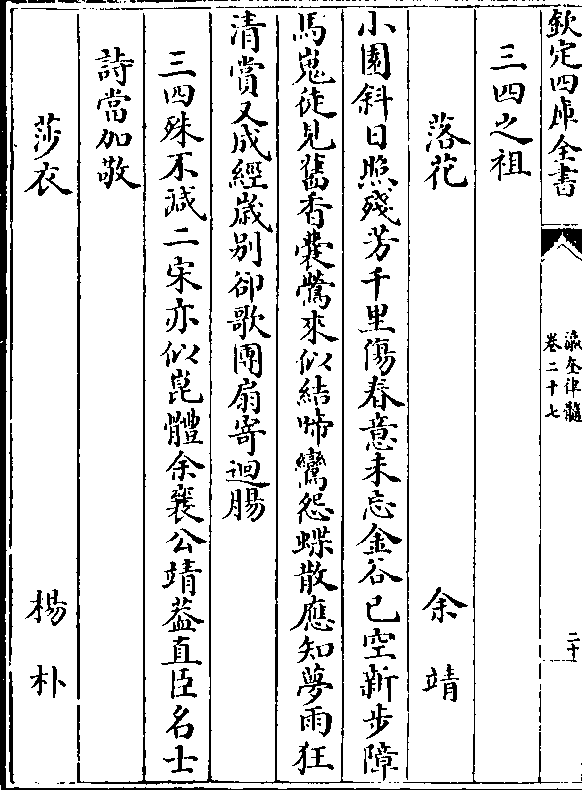 欽定四庫全書
瀛奎律髓
卷二十七
二十
三四之祖
落花 余靖
小園斜日照殘芳千里傷春意未忘金谷已空新步障
馬嵬徒見舊香囊鶯來似結啼鸞怨蝶散應知夢雨狂
清賞又成經歲別卻歌團扇寄迴腸
三四殊不減二宋亦似崑體余襄公靖葢直臣名士
詩當加敬
莎衣 楊朴